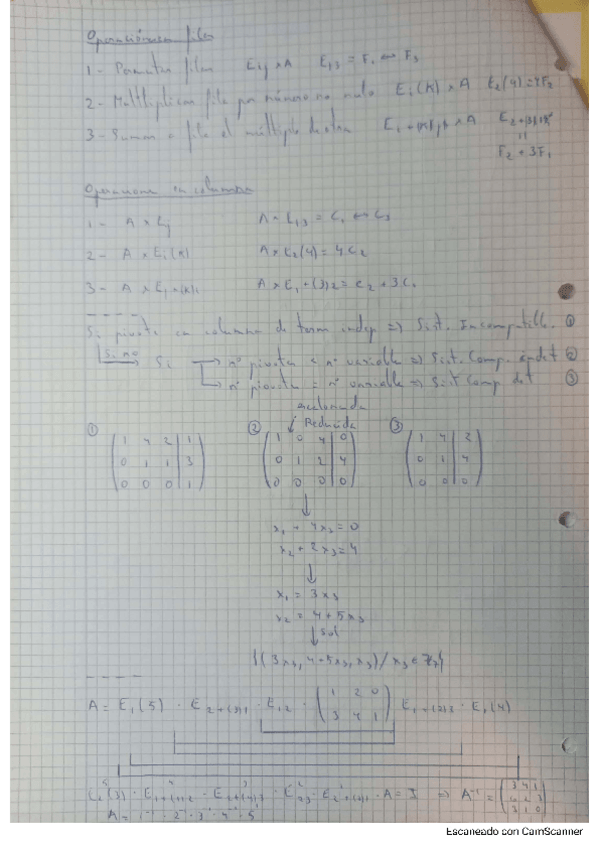 Operaciones en filas
1 - Permutar filas   Eij × A   E13 = F1 ↔ F3
2 - Multiplicar fila por número no nulo   Ei(K) × A   E2(4) = 4F2
3 - Sumar a fila el múltiplo de otra   × A
F2 + 3F1
Operaciones en columnas
1 -   A × Eij   = C1 ↔ C3
2 -   A × Ei(K)   A × E2(4) = 4C2
3 -   = C2 + 3C1
Si pivote en columna de term indep ⇒ Sist. Incompatible. ①
Si no → Si → nº pivotes < nº variable ⇒ Sist. Comp. indet ②
→ nº pivotes = nº variable ⇒ Sist Comp det ③
escalonada
Reducida
① ② ③
1 4 2 | 1   1 0 4 | 0   1 4 | 2
0 1 1 | 3   0 1 2 | 4   0 1 | 4
0 0 0 | 1   0 0 0 | 0   0 0 | 0
x1 + 4x3 = 0
x2 + 2x3 = 4
x1 = 3x3
x2 = 4 + 5x3
Sol
{(3x3, 4+5x3, x3) / x3 ∈ Z7}
A = E1(5) · E2+(3)1 · E12 · (1 2 0
3 4 1) · E1(4)
· A = I ⇒ A⁻¹ =
Escaneado con CamScanner